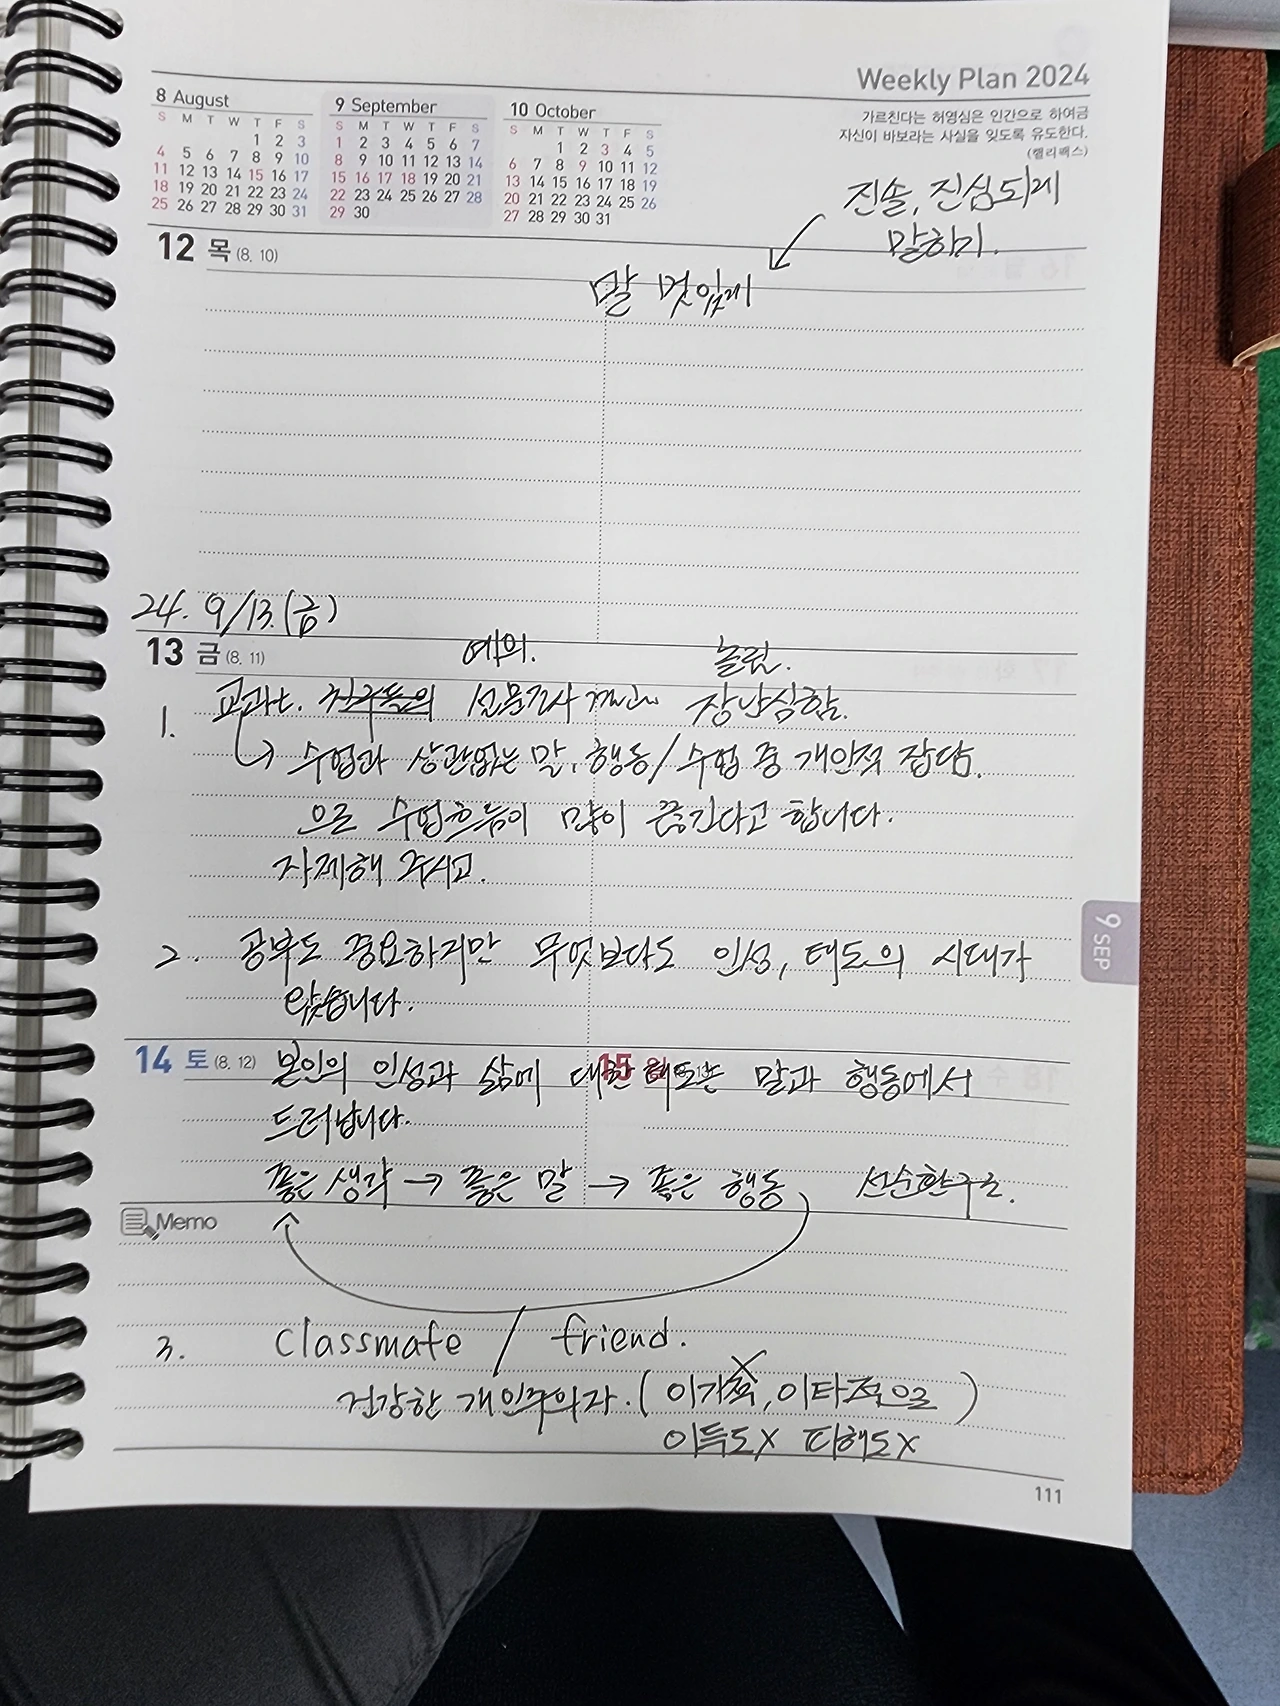 Weekly Plan 2024
8 August
S M T W T F S
1 2 3
4 5 6 7 8 9 10
11 12 13 14 15 16 17
18 19 20 21 22 23 24
25 26 27 28 29 30 31
9 September
S M T W T F S
1 2 3 4 5 6 7
8 9 10 11 12 13 14
15 16 17 18 19 20 21
22 23 24 25 26 27 28
29 30
10 October
S M T W T F S
1 2 3 4 5
6 7 8 9 10 11 12
13 14 15 16 17 18 19
20 21 22 23 24 25 26
27 28 29 30 31
가르친다는 허영심은 인간으로 하여금
자신이 바보라는 사실을 잊도록 유도한다.
(캘리팩스)
진솔, 진심되게
말하기.
12 목 (8. 10)
말 멋있게
24. 9/13.(금)
13 금 (8. 11)
예의. 놀림.
1. 교과t. 설문조사 장난심함.
수업과 상관없는 말, 행동/수업 중 개인적 잡담.
으로 수업흐름이 많이 끊긴다고 합니다.
자제해 주시고.
9 SEP
2. 공부도 중요하지만 무엇보다도 인성, 태도의 시대가
왔습니다.
14 토 (8. 12)
15
본인의 인성과 삶에 대한 태도는 말과 행동에서
드러납니다.
좋은 생각 → 좋은 말 → 좋은 행동 선순환구조.
Memo
3. classmate / friend.
건강한 개인주의자. (이기적, 이타적으로)
이득도x 피해도x
111